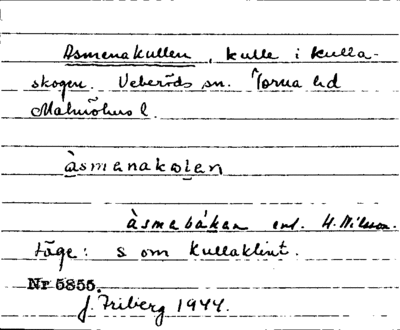 Asmenakullen, kulle i Kulla-
skogen. Veberöds sn. Torna hd
Malmöhus l.
àsmenakolen
àsmebákan enl. H. Nilsson.
Läge: S om Kullaklint.
Nr 5855.
J. Friberg 1944.